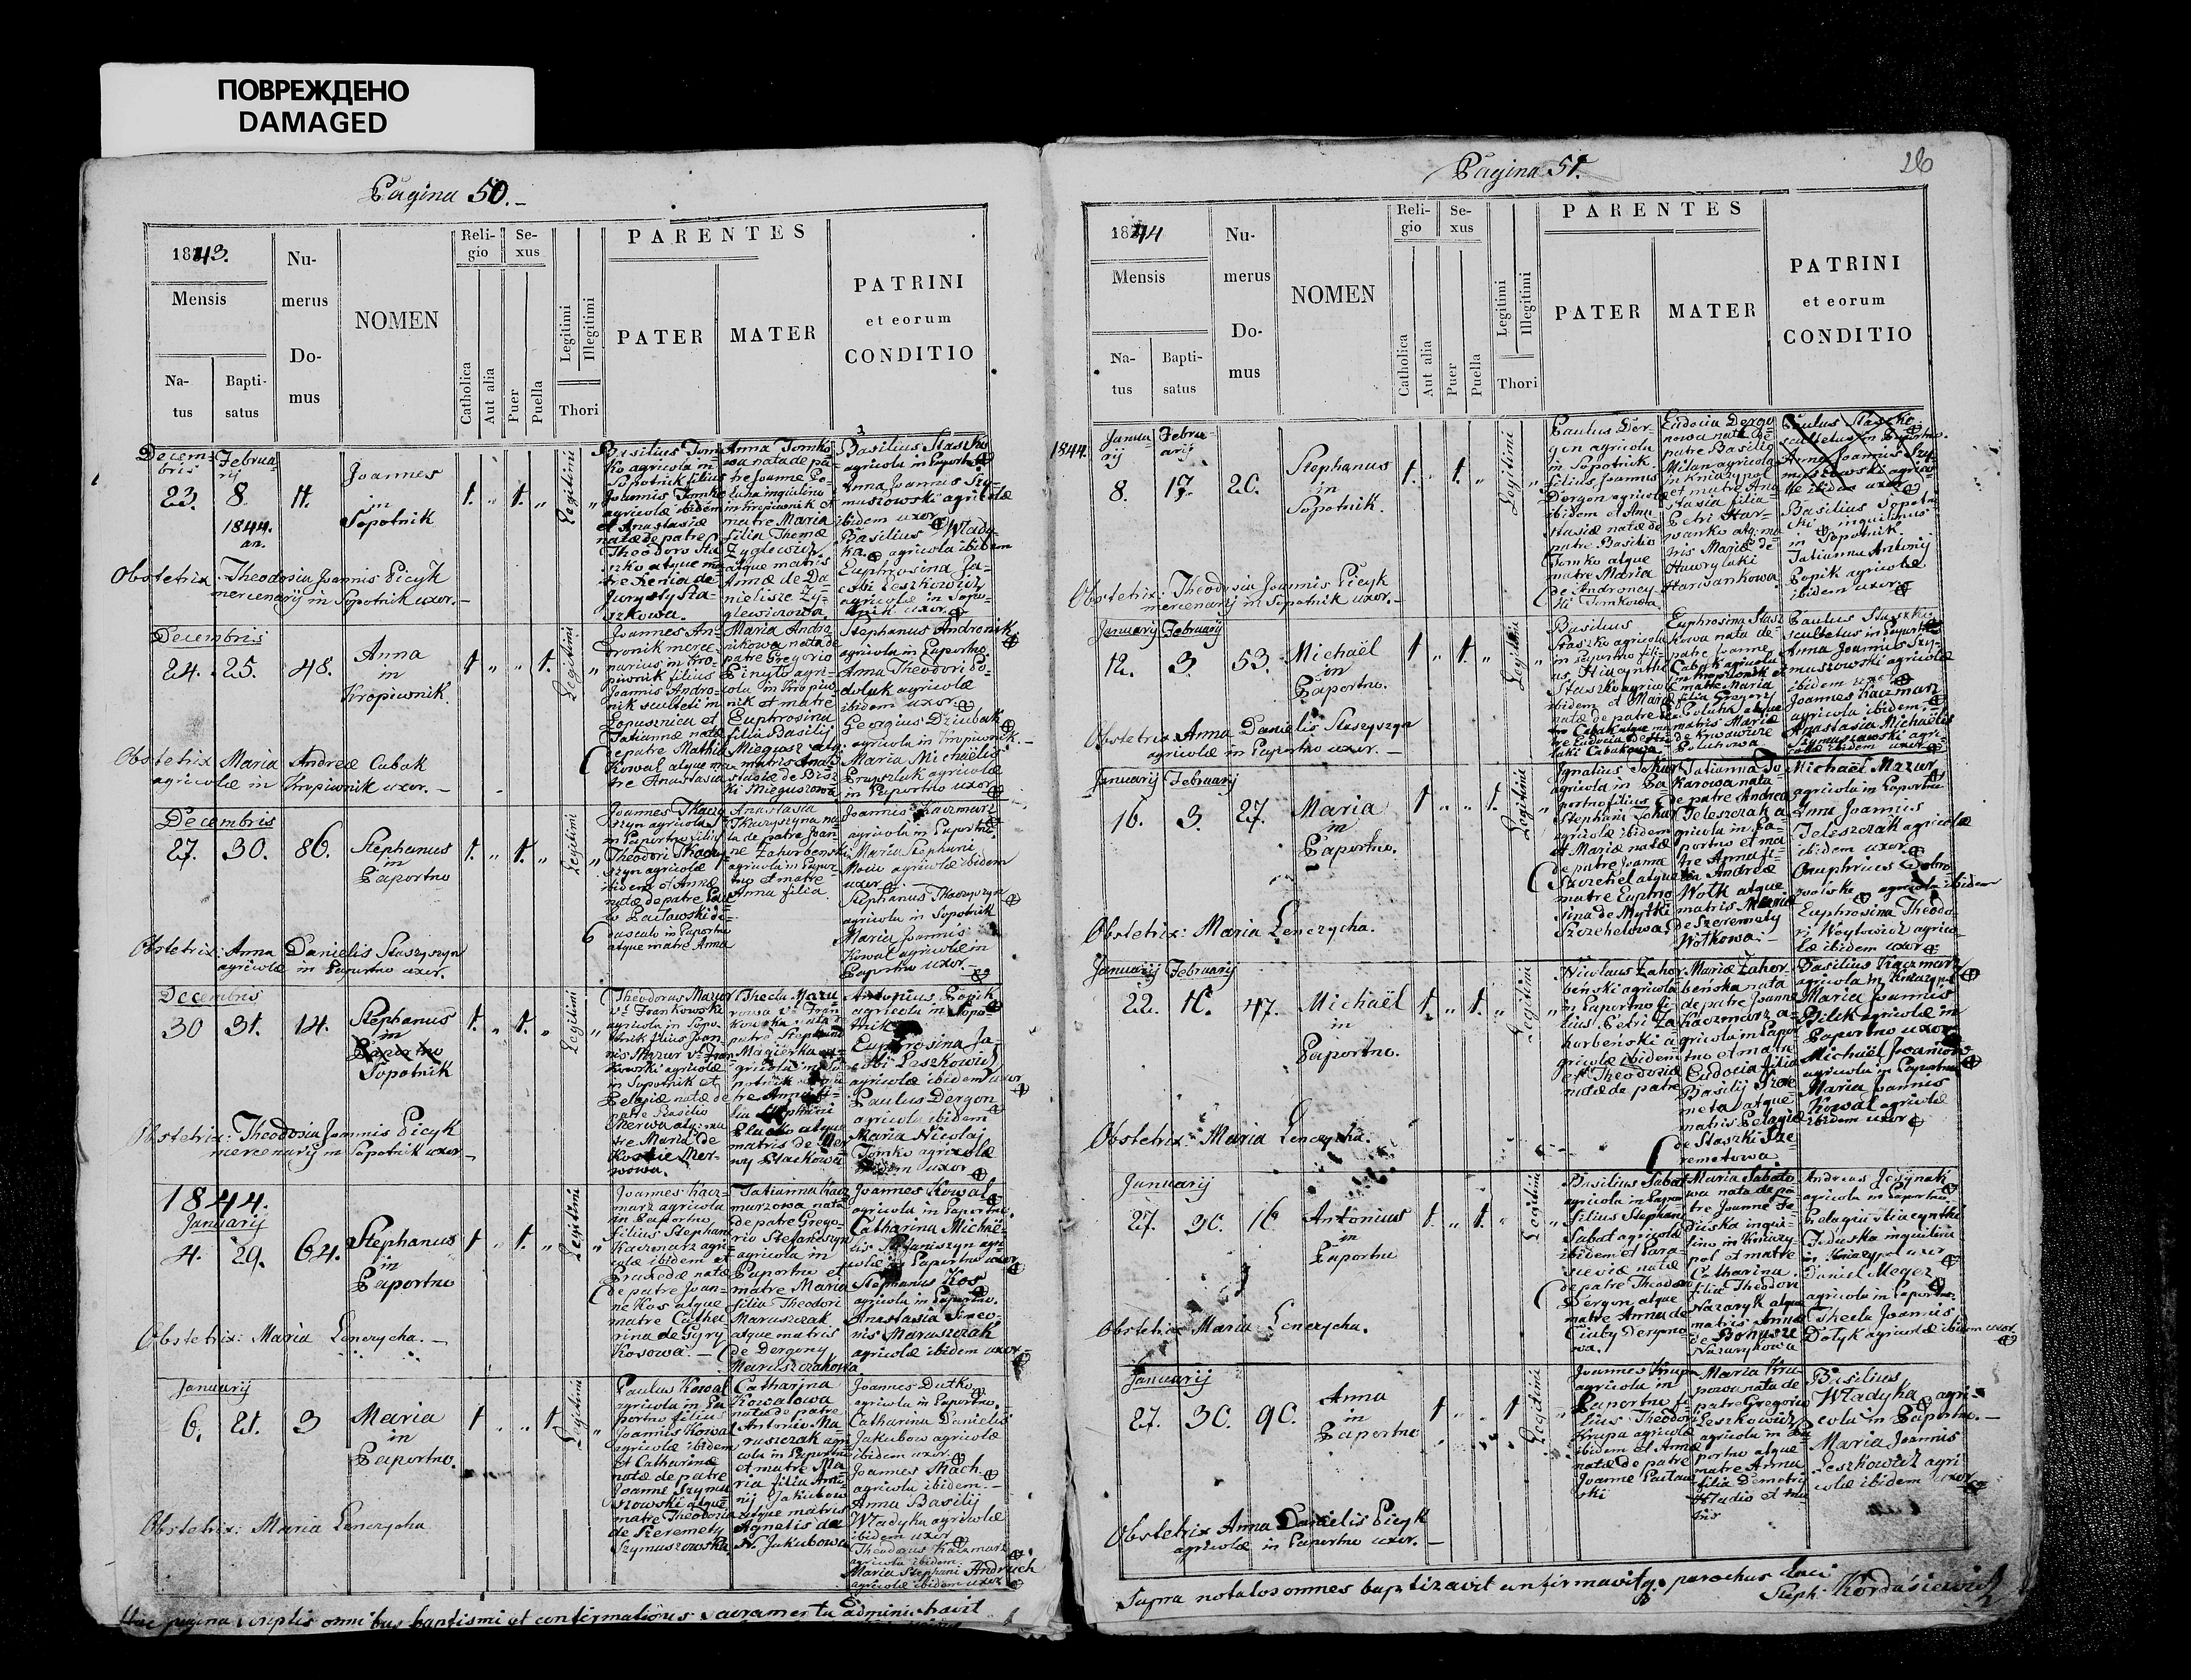 ПОВРЕЖДЕНО
DAMAGED
Pagina 50.-
1843.
Mensis
Na-
tus
Bapti-
satus
Nu-
merus
Do-
mus
NOMEN
Reli-
gio
Catholica
Aut alia
Se-
xus
Puer
Puella
Legitimi
Illegitimi
Thori
PARENTES
PATER
MATER
PATRINI
et eorum
CONDITIO
Decem-
bris
Februa-
rij
23.
8.
1844.
an.
11.
Joannes
in
Sopotnik
1. „ 1. „
Legitimi
Basilius Tom-
ko agricola in
Sopotnik filius
Joannis Tomko
agricolæ ibidem
et Anastasiæ
natæ de patre
Theodoro Sta-
szko atque ma-
tre Xenia de
Staszkowa.
Anna Tomko-
wa nata de pa-
tre Joanne
inquilino
in Kropiwnik et
matre Maria
filia Thomæ
Zyglewicz
atque matris
Annæ de Da-
nielisze Zy-
glewiczowa
Basilius Staszko
agricola in Paportno
Anna Joannis Szy-
muszowski agricolæ
ibidem uxor
Basilius Włady-
ka agricola ibidem
Euphrosina Ja-
cobi Leszkowicz
agricolæ in Sopo-
tnik uxor
Obstetrix: Theodosia Joannis Picyk
mercenarij in Sopotnik uxor.-
Decembris
24. 25. 48.
Anna
in
Kropiwnik
1 „ „ 1.
Legitimi
Joannes An-
dronik merce-
narius in Kro-
piwnik filius
Joannis Andro-
nik sculteti in
Łopusznica et
Tatiannæ natæ
de patre Mathia
Kowal atque ma-
tre Anastasia
Maria Andro-
nikowa nata de
patre Gregorio
Pinyło agri-
cola in Kropiw-
nik et matre
Euphrosina
filia Basilij
Miegusz atq:
matris Ana-
stasiæ de Bisz
ki Mieguszowa
Stephanus Andronik
agricola in Paportno
Anna Theodori Po-
doluk agricolæ
ibidem uxor.
Georgius Dziubak
agricola in Kropiwnik.-
Maria Michaëlis
agricolæ
in Paportno uxor
Obstetrix Maria Andreæ Cabak
agricolæ in Kropiwnik uxor.-
Decembris
27. 30. 86.
Stephanus
in
Paportno
1. „ 1. „
Legitimi
Joannes Tkaczy-
szyn agricola
in Paportno filius
Theodori Tkaczy-
szyn agricolæ
ibidem et Annæ
natæ de patre Pau-
lo Pacławski
in Paportno
atque matre Anna
Anastasia
Tkaczyszyna na-
ta de patre Joan-
ne Zahorbenski
agricola in Papor-
tno et matre
Anna filia
Joannes Kaczmarz
agricola in Paportno.
Maria Stephani
agricolæ ibidem
uxor.
Stephanus Tkaczyszyn
agricola in Sopotnik
Maria Joannis
Kowal agricolæ in
Paportno uxor.-
Obstetrix: Anna Danielis Staszyszyn
agricolæ in Paportno uxor.
Decembris
30 31. 14.
Stephanus
in
Paportno
Sopotnik
1. „ 1. „
Legitimi
Theodorus Mazur
vs Frankowski
agricola in Sopo-
tnik filius Joan-
nis Mazur vs Fran-
kowski agricolæ
in Sopotnik et
Pelagiæ natæ de
patre Basilio
Merwa atq: ma
tre Maria de
Kostie Mer-
wowa.
Thecla Mazu
rowa vs Fran
kowska nata de
patre Stephano
Magierka a-
gricola in So
potnik atque
tre Anna fi-
lia Stephani
Placko atque
matris de Mer
wy Plackowa
Antonius Popik
agricola in Sopo-
tnik
Euphrosina Ja-
cobi Leszkowicz
agricolæ ibidem uxor
Paulus Dergon
agricola ibidem
Maria Nicolai
Tomko agricolæ
ibidem uxor
Obstetrix: Theodosia Joannis Picyk
mercenarij in Sopotnik uxor-
1844.
Januarij
4. 29. 64.
Stephanus
in
Paportno
1 „ 1. „
Legitimi
Joannes Kacz-
marz agricola
in Paportno
filius Stephani
Kaczmarz agri-
colæ ibidem et
Praxedæ natæ
de patre Joan-
ne Kos atque
matre Catha
rina de Gyry
Kosowa.-
Tatianna Kacz
marzowa nata
de patre Grego-
rio Stefaniszyn
agricola in
Paportno et
matre Maria
filia Theodori
Maruszczak
atque matris
de Dergony
Maruszczakowa
Joannes Kowal
agricola in Paportno.
Catharina Michaë-
lis Stefaniszyn agri-
colæ in Paportno uxor
Stephanus Kos
agricola in Paportno.
Anastasia Simeo-
nis Maruszczak
agricolæ ibidem uxor-
Obstetrix: Maria Lenczycha.-
Januarij
6. 21. 3
Maria
in
Paportno.
1 „ „ 1
Legitimi
Paulus Kowal
agricola in Pa
portno filius
Joannis Kowal
agricolæ ibidem
et Catharinæ
natæ de patre
Joanne Szymu
szowski atque
matre Theodosia
de Szeremety
Szymuszowska
Catharina
Kowalowa
nata de patre
Antonio Ma
ruszczak agri
cola in Paportno
et matre Ma
ria filia Anto
nij Jakubow
atque matris
Agnetis de
N. Jakubowa
Joannes Dutko
agricola in Paportno.
Catharina Danielis
Jakubow agricolæ
ibidem uxor.
Joannes Mach
agricola ibidem.-
Anna Basilij
Władyka agricolæ
ibidem uxor
Theodorus Kaczmarz
agricola ibidem.
Maria Stephani Andruch
agricolæ ibidem uxor
Obstetrix: Maria Lenczycha
Hac pagina scriptis omnibus baptismi et confirmationis sacramenta administravit
Pagina 51.
26
1844
Mensis
Na-
tus
Bapti-
satus
Nu-
merus
Do-
mus
NOMEN
Reli-
gio
Catholica
Aut alia
Se-
xus
Puer
Puella
Legitimi
Illegitimi
Thori
PARENTES
PATER
MATER
PATRINI
et eorum
CONDITIO
1844.
Janua
rij
Febru-
arij
8. 17. 20.
Stephanus
in
Sopotnik.
1. „ 1. „
Legitimi
Paulus Der-
gon agricola
in Sopotnik
filius Joannis
Dergon agricolæ
ibidem et Ana
stasiæ natæ de
patre Basilio
Tomko atque
matre Maria
de Androney
ki Tomkowa
Eudocia Dergo
nowa nata de
patre Basilio
Milan agricola
in Kniazypol
et matre Ana
stasia filia
Petri Har-
wanko atq: ma
tris Mariæ de
Hawrylaki
Harwankowa
Paulus Staszko
scultetus in Paportno.
Anna Joannis Szy-
muszowski agrico-
læ ibidem uxor
Basilius Sopotni-
cki inquilinus
in Sopotnik.
Tatianna Antonij
Popik agricolæ
ibidem uxor.
Obstetrix: Theodosia Joannis Picyk
mercenarij in Sopotnik uxor.-
Januarij Februarij
12. 3. 53.
Michaël
in
Paportno.
1 „ 1. „
Legitimi
Basilius
Staszko agricola
in Paportno fili-
us Hiacynthi
Staszko agricolæ
ibidem et Mariæ
natæ de patre
Cabak atque ma
tre Eudocia de
Cabakowa
Euphrosina Stasz
kowa nata de
patre Joanne
Cabak agricola
in Kropiwnik et
matre Maria
filia Gregorij
Poluha atque
matris Mariæ
de Krwawicze
Poluhowa
Paulus Staszko
scultetus in Paportno
Anna Joannis Szy-
muszowski agricolæ
ibidem uxor
Joannes Kaczmarz
agricola ibidem.
Anastasia Michaëlis
Szymuszowski agri
colæ ibidem uxor
Obstetrix Anna Danielis Staszyszyn
agricolæ in Paportno uxor.-
Januarij Februarij
16. 3. 27.
Maria
in
Paportno.
1 „ „ 1.
Legitimi
Ignatius Tokar
agricola in Pa
portno filius
Stephani Tokar
agricolæ ibidem
et Mariæ natæ
de patre Joanne
Szczehel atque
matre Euphro
sina de Mytki
Szczehelowa.
Tatianna To
karowa nata
de patre Andrea
Teleszczak a
gricola in Pa-
portno et ma
tre Anna fi-
lia Andreæ
Wołk atque
matris Mariæ
de Szeremety
Wołkowa.-
Michaël Mazur
agricola in Paportno
Anna Joannis
Teleszczak agricolæ
ibidem uxor.
Onuphrius Dobro
wolski agricola ibidem
Euphrosina Theodo-
ri Woytowicz agrico-
læ ibidem uxor
Obstetrix: Maria Lenczycha.
Januarij Februarij
22. 10. 47.
Michaël
in
Paportno.
1. „ 1. „
Legitimi
Nicolaus Zahor-
beński agricola
in Paportno fi-
lius Petri Za
horbeński a
gricolæ ibidem
et Theodosiæ
natæ de patre
Mariæ Zahor-
beńska nata
de patre Joanne
Kaczmarz a-
gricola in Papor
tno et matre
Eudocia filia
Basilij Sze
meta atque
matris Pelagiæ
de Staszki Sze
remetowa.
Basilius Kaczmarz
agricola in Kniazypol
Maria Joannis
Bilik agricolæ in
Paportno uxor
Michaël Iwaniow
agricola in Paportno
Maria Joannis
Kowal agricolæ
ibidem uxor
Obstetrix: Maria Lenczycha.
Januarij
27. 30. 10.
Antonius
in
Paportno
1. „ 1. „
Legitimi
Basilius Sabat
agricola in Papor
filius Stephani
Sabat agricolæ
ibidem et Para-
sceviæ natæ
de patre Theodoro
Dergon atque
matre Anna de
Ciuby Dergono
wa.
Maria Sabato
wa nata de pa-
tre Joanne Fe-
duska inqui-
lino in Kniazy-
pol et matre
Catharina
filia Theodori
Nazaryk atque
matris Annæ
de Bohusze
Nazarykowa
Andreas Jesijnak
agricola in Paportno
Pelagia Hiacynthi
Feduska inquilini
in Kniazypol uxor
Daniel Megez
agricola in Paportno.
Thecla Joannis
Dotyk agricolæ ibidem uxor
Obstetrix Maria Lenczycha.
Januarij
27. 30. 90.
Anna
in
Paportno
1 „ „ 1
Legitimi
Joannes Krupa
agricola in
Paportno fi-
lius Theodori
Krupa agricolæ
ibidem et Annæ
natæ de patre
Joanne Pacław
ski
Maria Kru
powa nata de
patre Gregorio
Leszkowicz
agricola in Pa
portno atque
matre Anna
filia Demetrij
Hladio et ma
tris
Basilius
Władyka agri-
cola in Paportno.-
Maria Joannis
Leszkowicz agri
colæ ibidem uxor
Obstetrix Anna Danielis Picyk
agricolæ in Paportno uxor.-
Supra notatos omnes baptizavit confirmavitq: parochus loci
Steph: Kordasiewicz